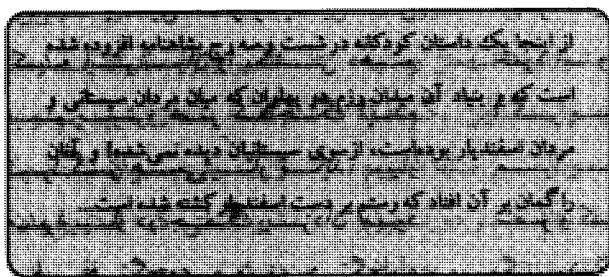 از اینجا یک داستان کودکانه در شست وسه رج بشاهنامه افزوده شده
است که بر بنیاد آن میدان رزم دو پهلوان که میان مردان سیستانی و
مردان اسفندیار بوده‌است، از سوی سیستانیان دیده نمی‌شده! و آنان
را گمان بر آن افتاد که رستم بر دست اسفندیار کشته شده است...